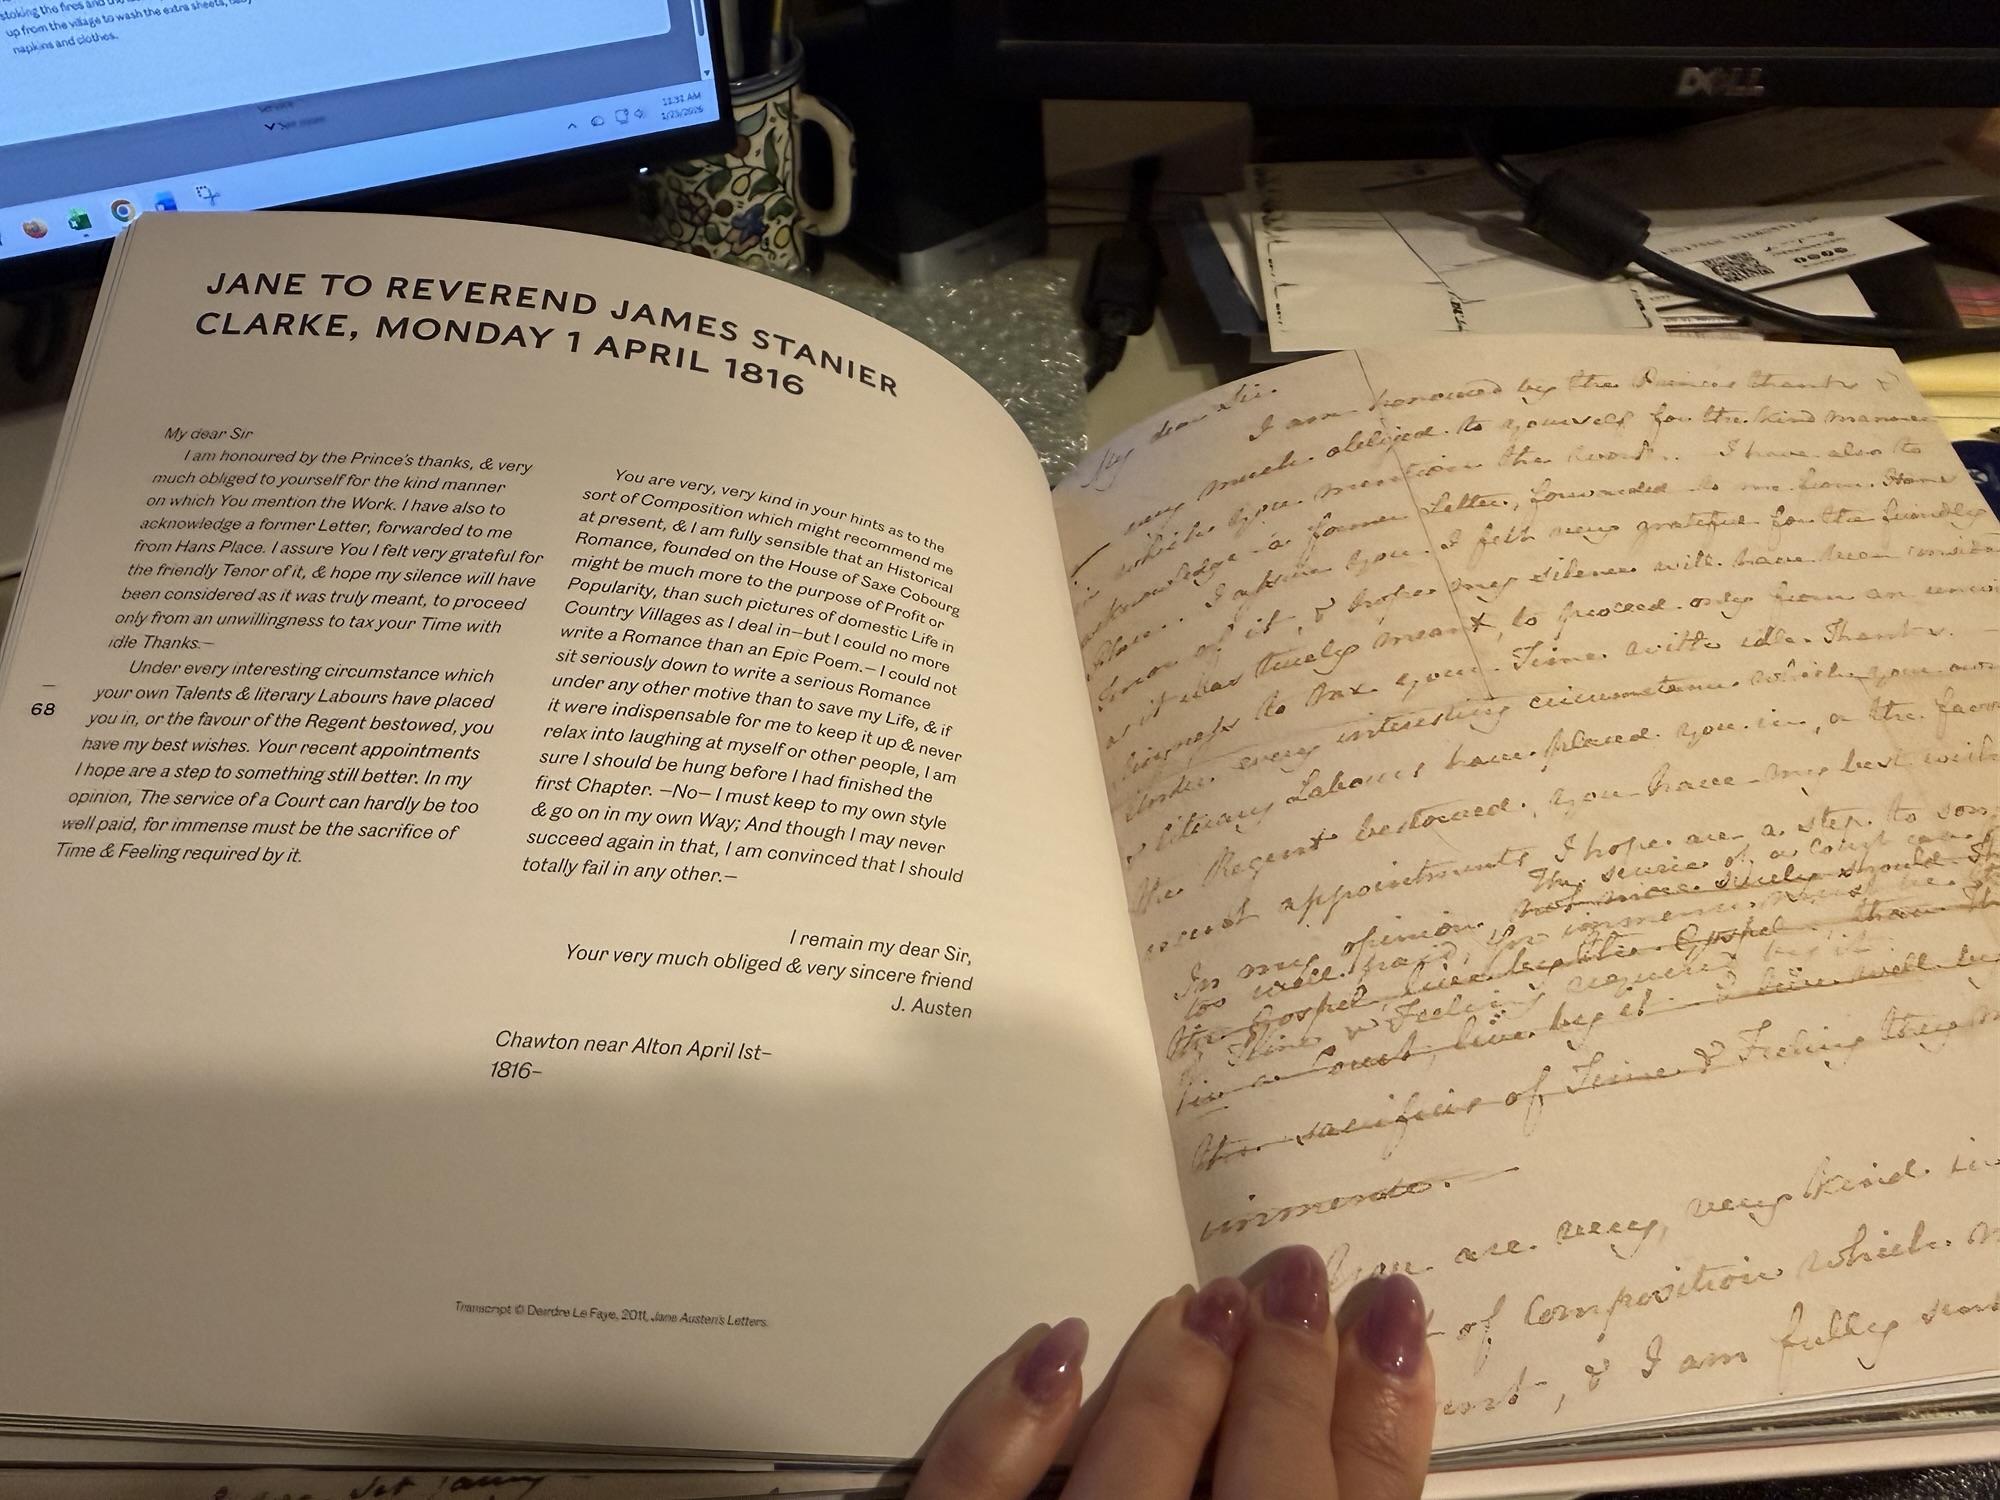 stoking the fires and the
up from the village to wash the extra sheets, baby
napkins and clothes.
11:32 AM
DELL
JANE TO REVEREND JAMES STANIER
CLARKE, MONDAY 1 APRIL 1816
My dear Sir
I am honoured by the Prince's thanks, & very
much obliged to yourself for the kind manner
on which You mention the Work. I have also to
acknowledge a former Letter, forwarded to me
from Hans Place. I assure You I felt very grateful for
the friendly Tenor of it, & hope my silence will have
been considered as it was truly meant, to proceed
only from an unwillingness to tax your Time with
idle Thanks.—
Under every interesting circumstance which
your own Talents & literary Labours have placed
you in, or the favour of the Regent bestowed, you
have my best wishes. Your recent appointments
I hope are a step to something still better. In my
opinion, The service of a Court can hardly be too
well paid, for immense must be the sacrifice of
Time & Feeling required by it.
68
You are very, very kind in your hints as to the
sort of Composition which might recommend me
at present, & I am fully sensible that an Historical
Romance, founded on the House of Saxe Cobourg
might be much more to the purpose of Profit or
Popularity, than such pictures of domestic Life in
Country Villages as I deal in—but I could no more
write a Romance than an Epic Poem.— I could not
sit seriously down to write a serious Romance
under any other motive than to save my Life, & if
it were indispensable for me to keep it up & never
relax into laughing at myself or other people, I am
sure I should be hung before I had finished the
first Chapter. —No— I must keep to my own style
& go on in my own Way; And though I may never
succeed again in that, I am convinced that I should
totally fail in any other.—
I remain my dear Sir,
Your very much obliged & very sincere friend
J. Austen
Chawton near Alton April Ist–
1816–
Transcript © Deirdre Le Faye, 2011, Jane Austen's Letters.
My dear Sir.
I am honoured by the Princes thanks &
very much obliged to yourself for the kind manner
in which You mention the Work. I have also to
acknowledge a former Letter, forwarded to me from Hans
Place. I assure You I felt very grateful for the friendly
Tenor of it, & hope my silence will have been
as it was truly meant, to proceed only from an
to tax your Time with idle Thanks. —
Under every interesting circumstance which your own
& literary Labours have placed you in, or the
the Regent bestowed, you have my best
recent appointments I hope are a step to
The service of a Court can
In my opinion not more surely should
too well paid, for immense must be
the Gospel live by the Gospel than
Time & Feeling required by it.
in a Court, live by it
the sacrifices of Time & Feeling they
immense.
You are very, very kind in
of Composition which
, & I am fully